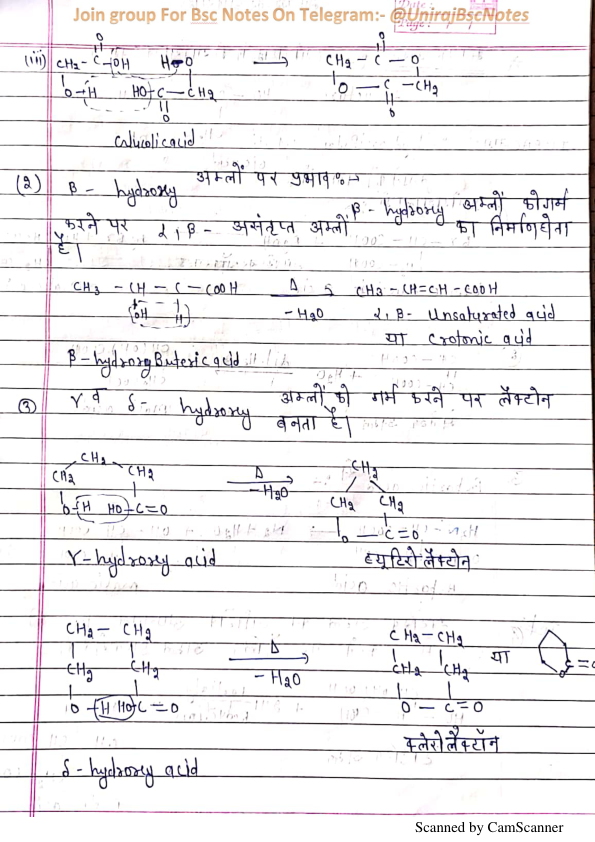 Join group For Bsc Notes On Telegram:- @UnirajBscNotes
Date
Page
O O
(iii) CH2 - C - OH H - O → CH2 - C - O
O - H HO - C - CH2 O - C - CH2
O O
Calycolic acid
(2) β - hydroxy अम्लों पर प्रभाव :-
β - hydroxy अम्लों को गर्म
करने पर α, β - असंतृप्त अम्लों का निर्माण होता
है।
CH3 - CH - C - COOH Δ → CH3 - CH=CH - COOH
OH H - H2O α, β - Unsaturated acid
या Crotonic acid
β - hydroxy Buteric acid
③ γ व δ - hydroxy अम्लों को गर्म करने पर लैक्टोन
बनता है।
CH2 Δ → CH2
CH2 CH2 - H2O CH2 CH2
O - H HO - C = O O - C = O
γ - hydroxy acid ब्यूटिरो लैक्टोन
CH2 - CH2 Δ → CH2 - CH2 या
CH2 CH2 - H2O CH2 CH2 C = O
O - H HO - C = O O - C = O
वलेरो लैक्टॉन
δ - hydroxy acid
Scanned by CamScanner